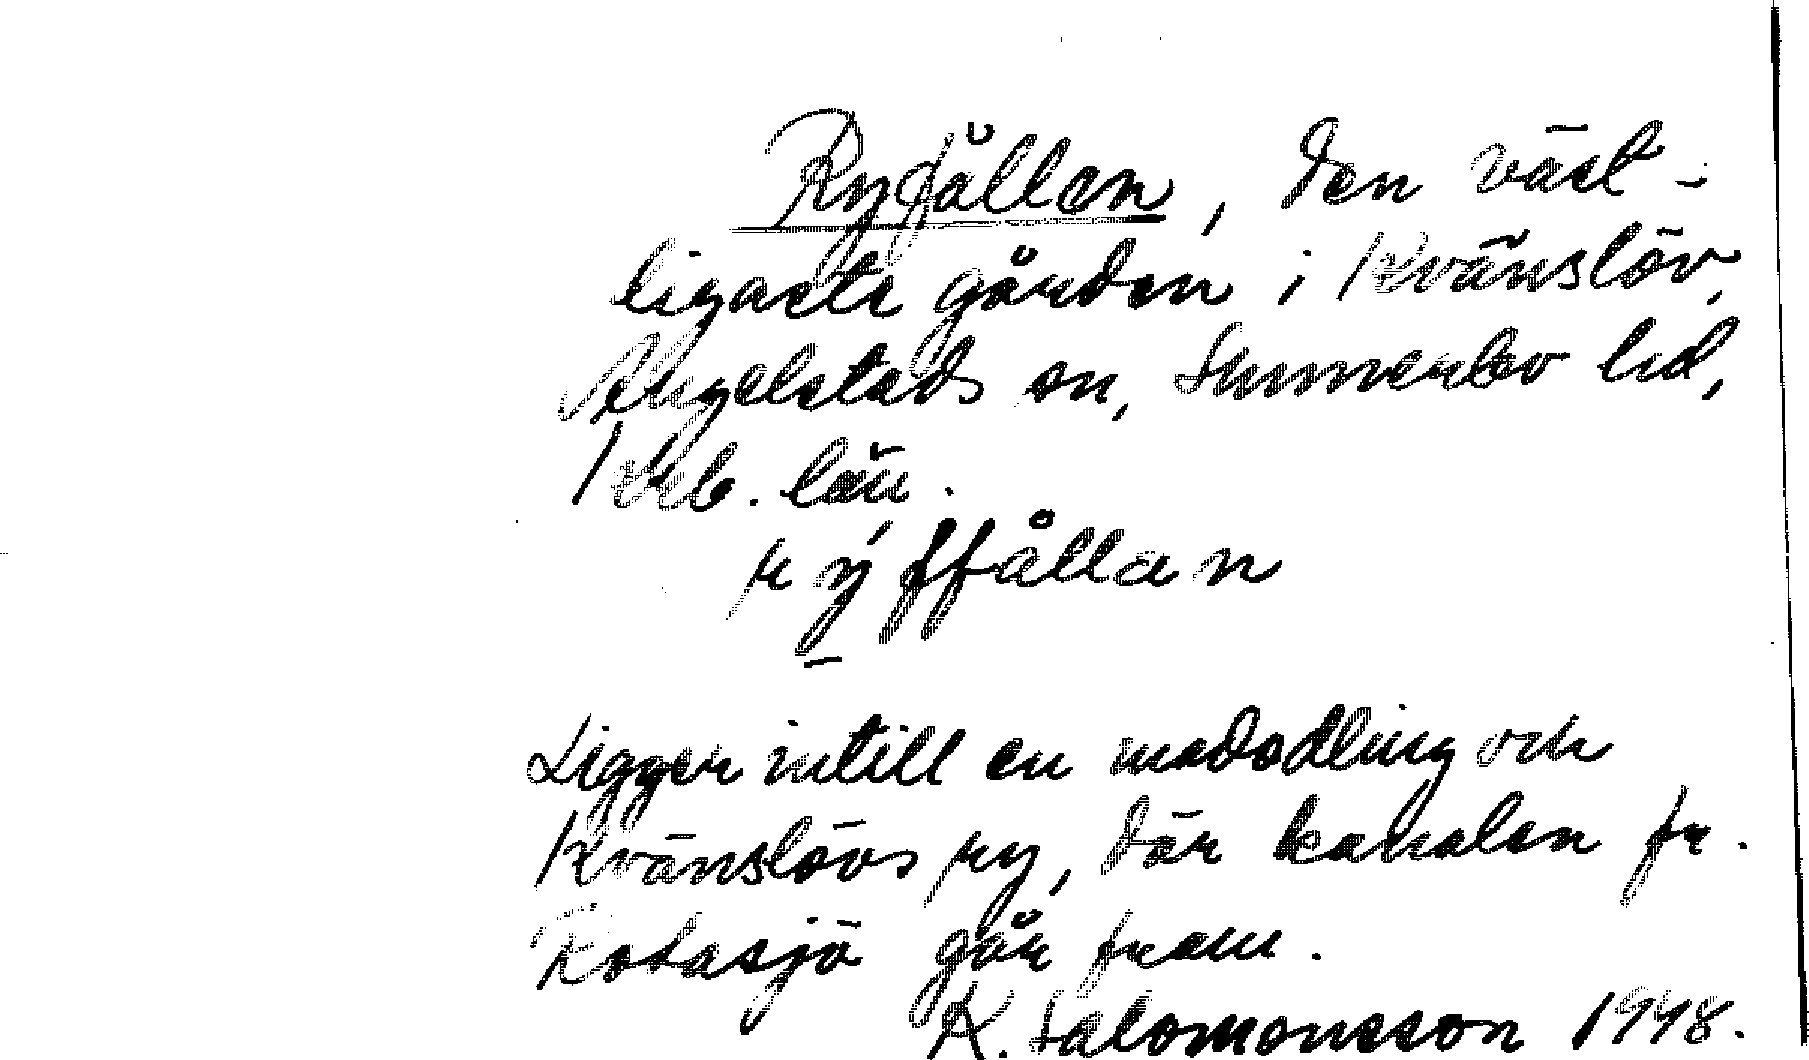 Ryfållen, den väst-
ligaste gården i Kvänslöv,
Angelstads sn, Sunnerbo hd,
Krb. län.
rýffållan
Ligger intill en madodling och
Kvänslövs ry, där kanalen fr.
Kotasjö går fram.
K. Salomonsson 1948.